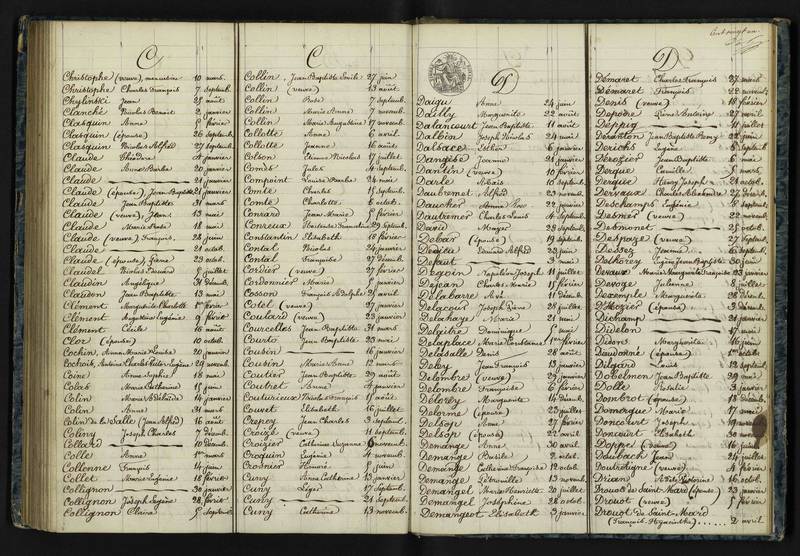 C
Christophe (veuve), 10 mars.
Christophe Charles François 7 septemb.
Chylinski Jean 25 août
Clanché Nicolas Benoit 2 janvier
Clasquin Anne 5 février
Clasquin (épouse) 26 septemb.
Clasquin Nicolas Alfred 27 septemb.
Claude Théodore 4 janvier
Claude 20 janvier
Claude 21 janvier
Claude (épouse) Jean Baptiste 21 janvier
Claude Jean Baptiste 31 mars
Claude (veuve) Jean 13 mai
Claude Marie 18 mai
Claude (veuve) François, 28 juin
Claude 21 octob.
Claude (épouse) 23 octob.
Claudel Nicolas 5 juillet
Claudin Angélique 31 décemb.
Claudon Jean Baptiste 13 mai
Clément 1er février
Clément Augustine Eugénie 9 févr.
Clément Cécile 16 août
Clor (épouse) 10 août
Cochin, 20 janvier
Cochois, Antoine Charles Victor Eugène 29 novemb.
Coine Anne Sophie 18 mai
Colas Marie Catherine 15 juin
Colin Marie Adélaïde 14 janvier
Colin Anne 31 mars
Colin de la Salle (Jean Alfred) 16 août
Coliny Joseph Charles 7 décemb.
Collard 10 décemb.
Colle Anne 1er mars
Collenne François 14 juin
Collet Marie Eugénie 18 février
Collignon 30 janvier
Collignon Joseph Eugène 28 févr.
Collignon Claire 5 septemb.
C
Collin, Jean Baptiste Emile 27 juin
Collin (veuve) 13 août
Collin Rose 7 septemb.
Collin Marie Anne 7 novemb.
Collin Marie Augustine 17 novemb.
Collotte Anne 6 avril
Collotte Jeanne 16 août
Colson Etienne Nicolas 17 juillet
Comés Jules 4 septemb.
Compoint 24 mai
Comte Charles 15 septemb.
Comte Charlotte 6 octob.
Conrard Jean Marie 5 février
Conreux 29 septemb.
Constantin Elisabeth 18 février
Contal Nicolas 24 janvier
Contal Françoise 27 décemb.
Cordier (veuve) 27 février
Cordonnier Marie 5 janvier
Cosson François Adolphe 25 avril
Cotel (veuve) 7 janvier
Coulard (veuve) 23 janvier
Courcelles Jean Baptiste 31 mars
Courto Jean Baptiste 23 mai
Cousin 16 janvier
Cousin Marie Anne 12 novemb.
Coutier Jean Baptiste 29 août
Coutret Anne 4 janvier
Couturieux Nicolas François 15 août
Couvet Elisabeth 16 juillet
Crepey Jean Charles 3 septemb.
Croizé (veuve) 11 septemb.
Croizier Catherine Suzanne 6 novemb.
Croquin Eugénie 4 novemb.
Crosnier Honoré 5 juin
Cuny Anne Catherine 13 janvier
Cuny Léger 17 septemb.
Cuny 21 septemb.
Cuny Catherine 13 novemb.
D
Daigu Anne 24 juin
Dailly Marguerite 22 août
Dalancourt Jean Baptiste 11 août
Dalbin Joseph Nicolas 24 mai
Dalsace Esther 6 janvier
Dangése Jeanne 21 janvier
Dantin (veuve) 10 février
Darle 10 septemb.
Daubresnet Alfred 23 novemb.
Daucher 22 janvier
Dautremer Charles Louis 4 septemb.
David Mayer 28 septemb.
Debar (épouse) 19 septemb.
Dedille Edouard Alfred 23 juin
Defaut 3 mai
Degoin Napoléon Joseph 11 juillet
Dejean Charles Marie 15 février
Delabarre 11 décemb.
Delacour Joseph Pierre 28 juillet
Delachaye Marie 21 juin
Delgitre Dominique 5 mai
Delaplace Marie Constance 1er février
Delasalle Denis 28 août
Deloy Jean François 13 janvier
Delombre (veuve) 29 janvier
Delombre Françoise 6 février
Delorey Marguerite 14 décemb.
Delorme (épouse) 23 juillet
Delsop Anne 27 février
Delsop (épouse) 22 avril
Demange Anne 30 avril
Demange Basile 2 octob.
Demange Catherine Françoise 12 octob.
Demange Pétronille 13 novemb.
Demangel Marie Henriette 20 juillet
Demangel Joséphine 28 octob.
Demangeot Elisabeth 3 janvier
D
Demaret Charles François 27 mars
Démaret François 22 novemb.
Denis (veuve) 18 février
Depodre Pierre Antoine 27 avril
Deppig 4 juillet
Deranton Jean Baptiste Remy 22 juin
Derichs Eugène 8 septemb.
Derozier Jean Baptiste 6 mai
Derque Camille 5 mars
Derquie Henry Joseph 21 octob.
Dervaux Charles Alexandre 27 décemb.
Deschamps Eugénie 18 septemb.
Desmer (veuve) 22 novemb.
Desmonet 25 octob.
Despaze (veuve) 27 septemb.
Desses Jeanne 6 septemb.
Dethorey Eugène Jean Baptiste 30 juin
Devaux Marie Marguerite Françoise 23 janvier
Devoge Julienne 8 juillet
Dexemple Marguerite 28 décemb.
D'Hozier (épouse) 3 décemb.
Dichamp 21 janvier
Didelon 17 mai
Didon Marguerite 16 juin
Dieudonné (épouse) 1er octob.
Digard Louis 12 septemb.
Dobelmen Jean Baptiste 29 mai
Dolle Rosalie 3 janvier
Dombrot (épouse) 18 décemb.
Domergue Marie 17 avril
Doncourt Joseph 19 novemb.
Doncourt Elisabeth 30 novemb.
Doppler (veuve) 16 juillet
Doubach Jean 24 juillet
Doutreligne (veuve) 4 février
Drian 16 octob.
Drouot de Saint-Mard (épouse) 23 janvier
Drouot (veuve) 5 février
Drouot de Saint-Mard
(François Hyacinthe) ...... 2 avril